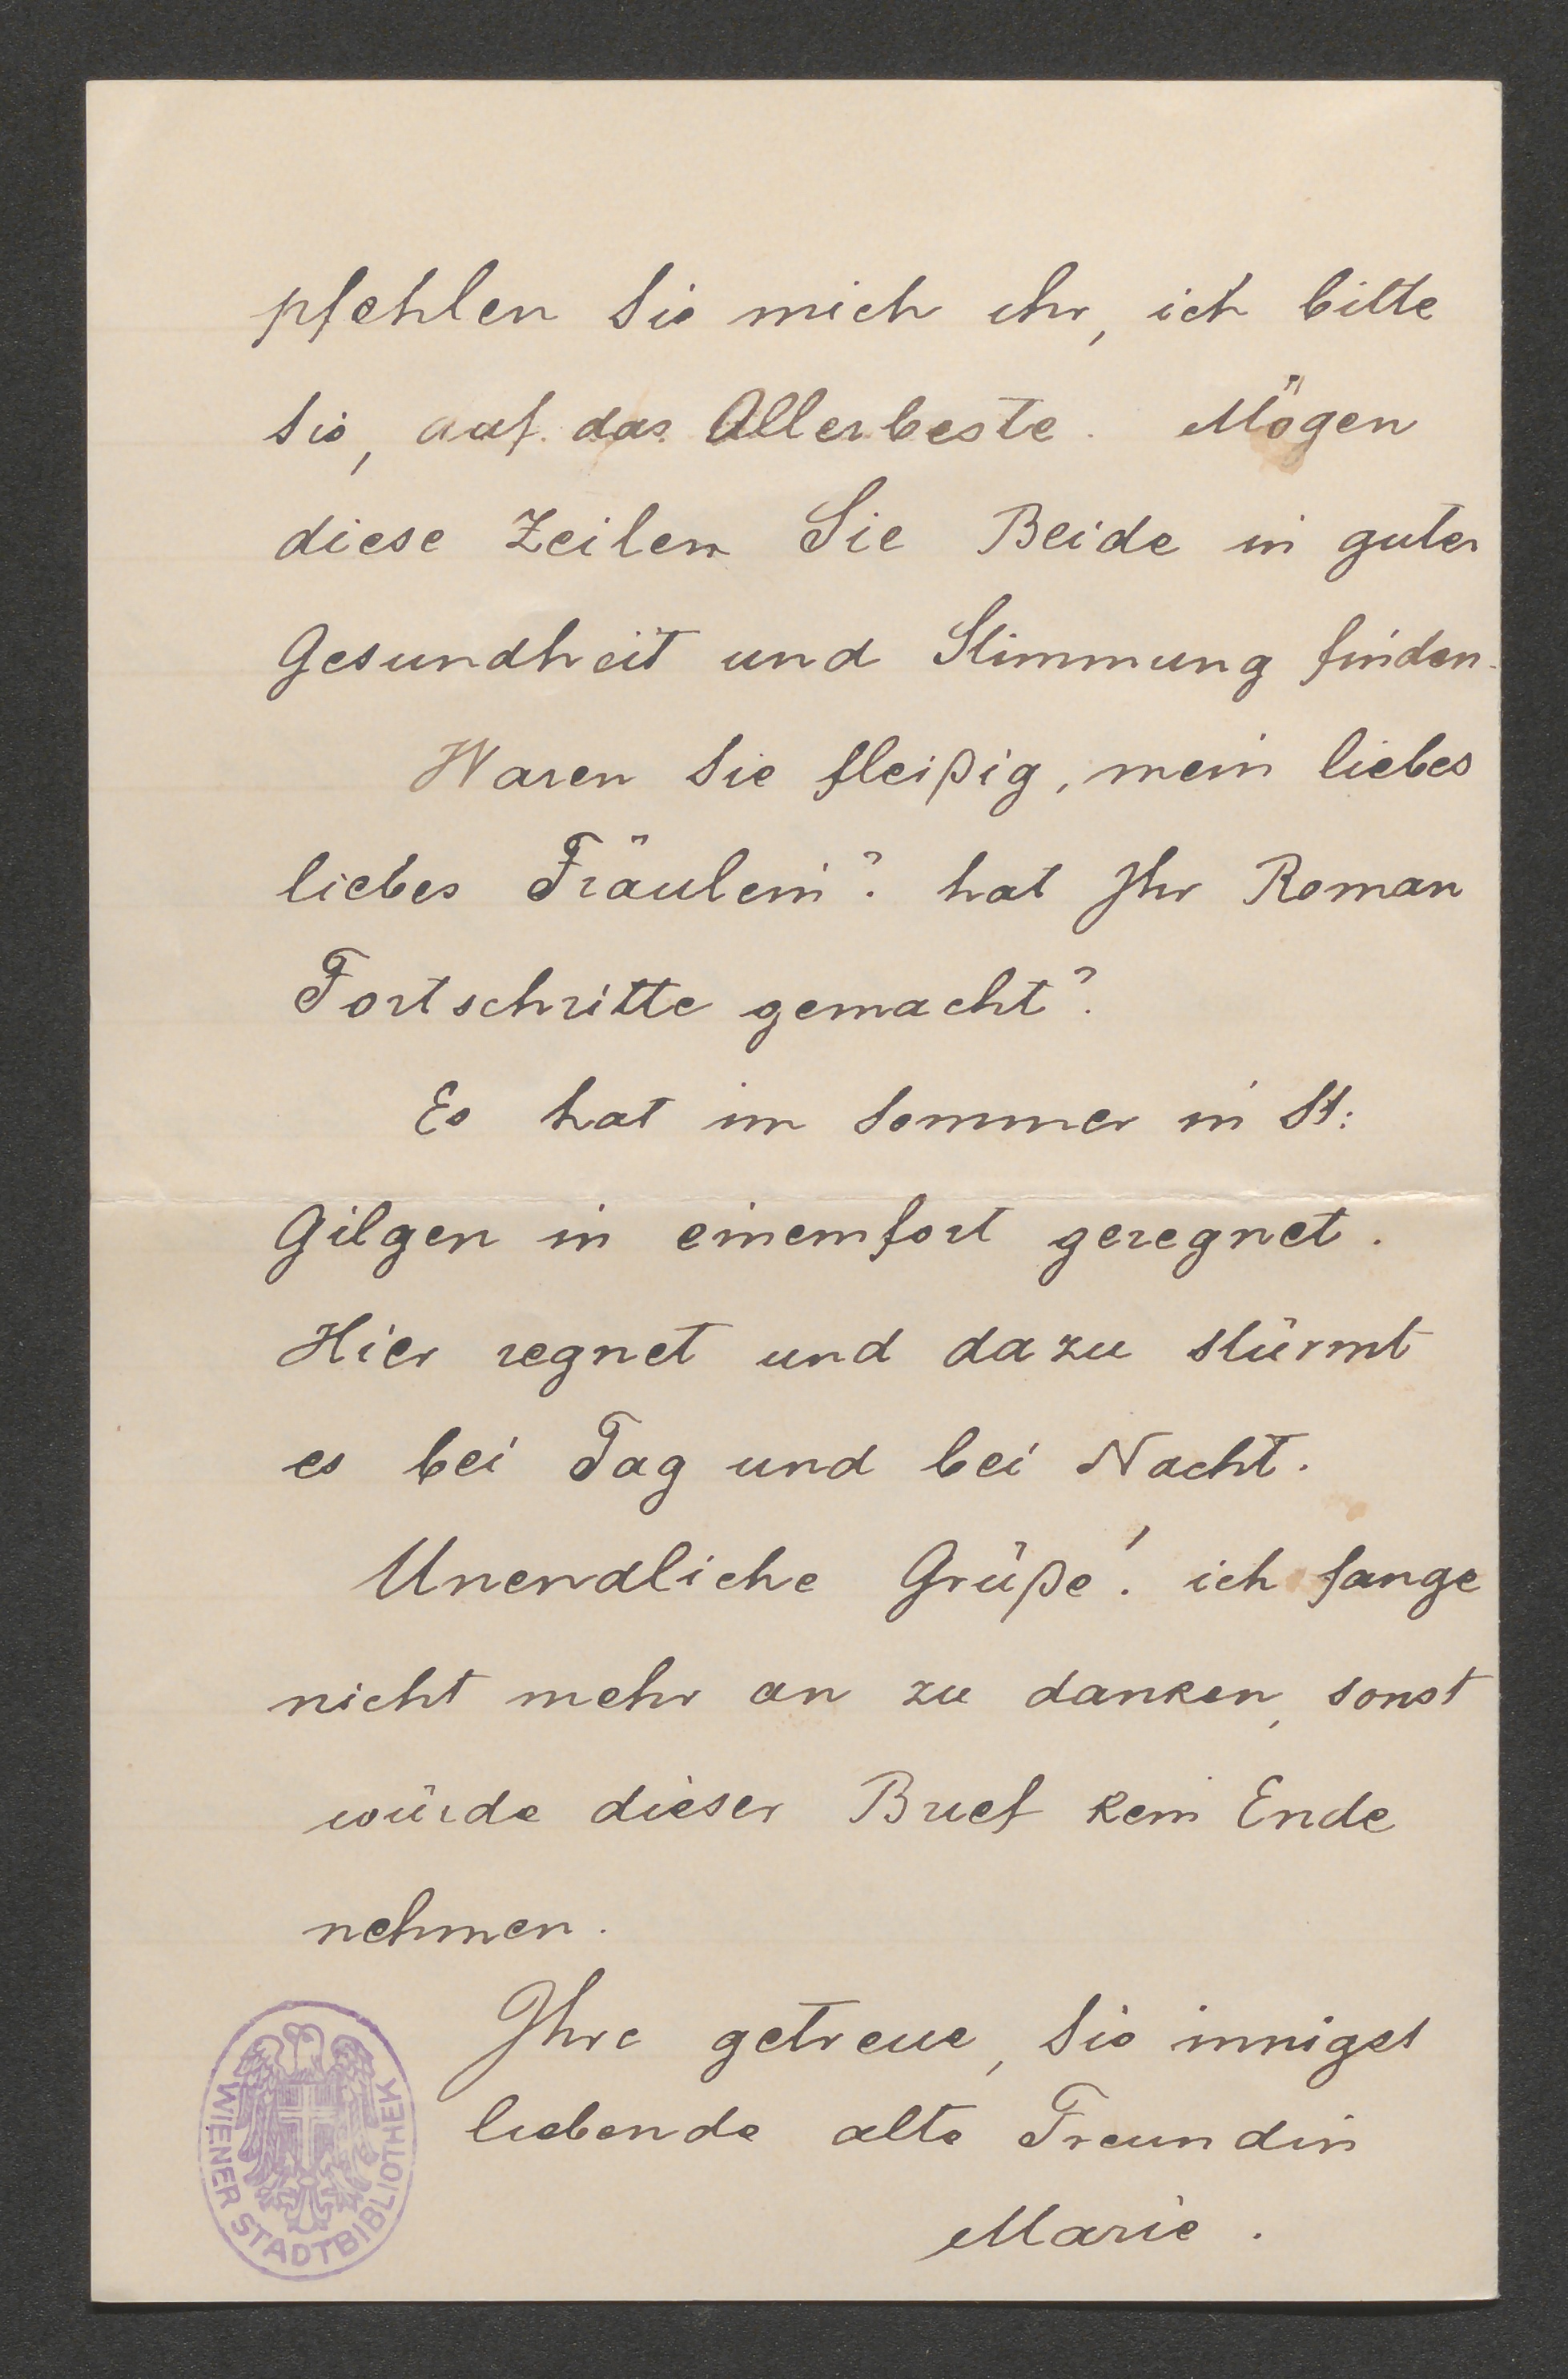 pfehlen Sie mich ihr, ich bitte
Sie, auf das Allerbeste. Mögen
diese Zeilen Sie Beide in guter
Gesundheit und Stimmung finden.
Waren Sie fleißig, mein liebes
liebes Fräulein? hat Ihr Roman
Fortschritte gemacht?
Es hat im Sommer in St:
Gilgen in einemfort geregnet.
Hier regnet und dazu stürmt
es bei Tag und bei Nacht.
Unendliche Grüße! ich fange
nicht mehr an zu danken, sonst
würde dieser Brief kein Ende
nehmen.
Ihre getreue, Sie innigst
liebende alte Freundin
Marie.
WIENER STADTBIBLIOTHEK